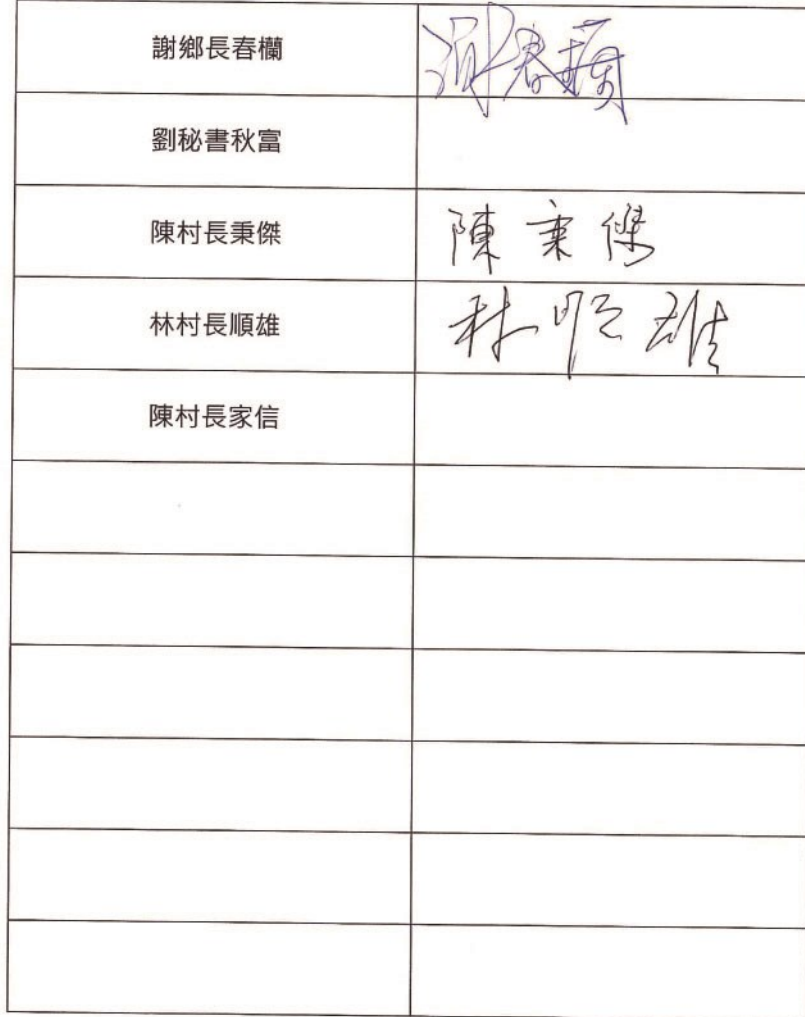 謝鄉長春欄
謝春蘭
劉秘書秋富
陳村長秉傑
陳秉傑
林村長順雄
林順雄
陳村長家信